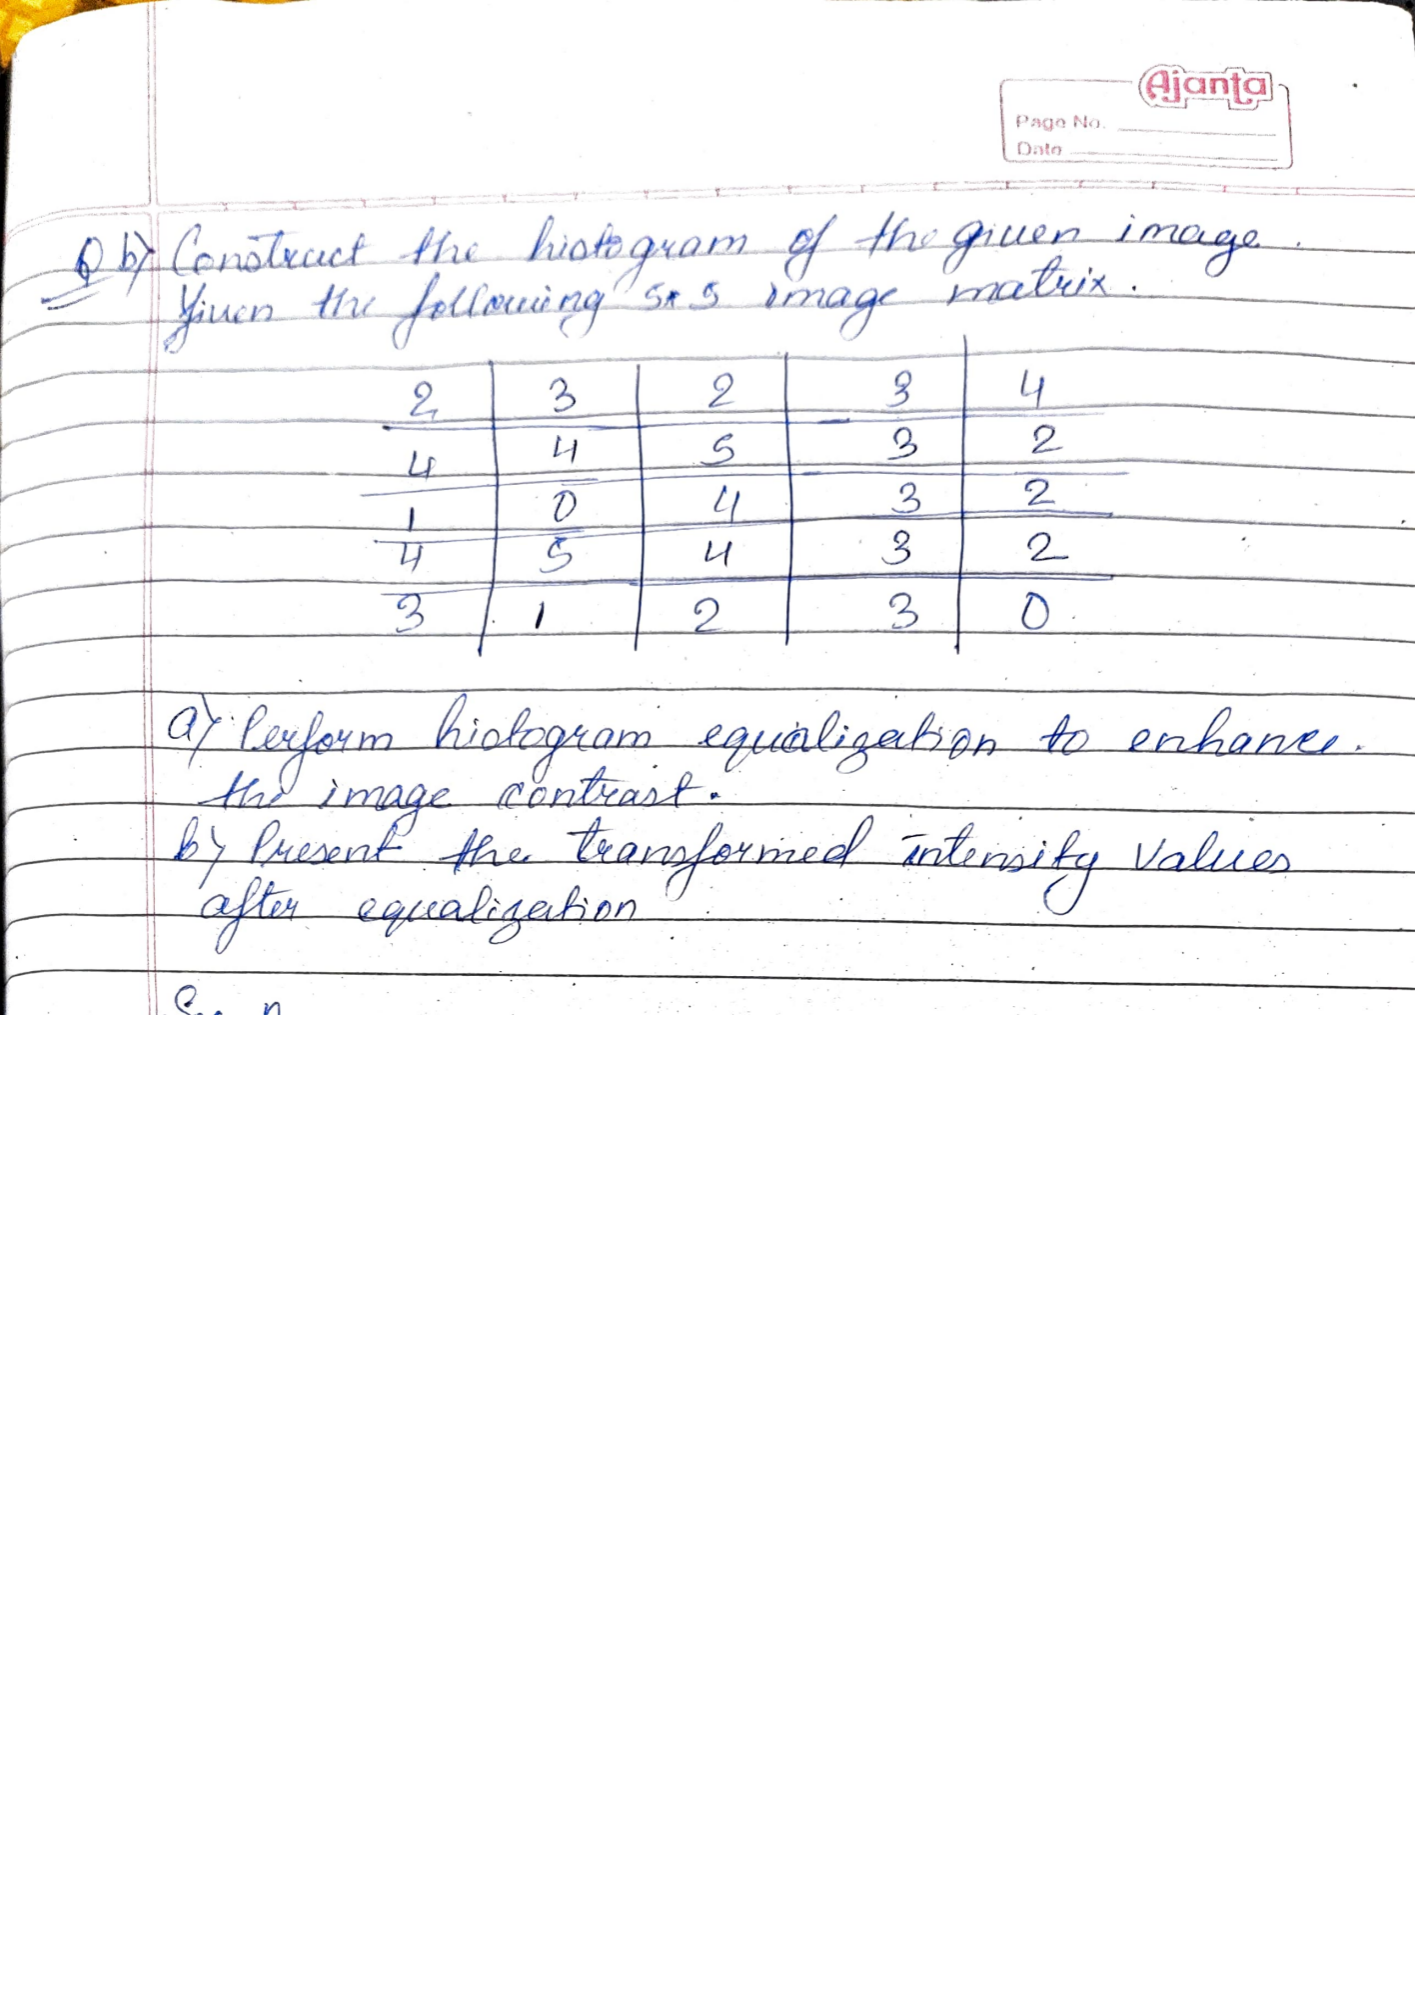 Ajanta
Page No.
Date
Q b) Construct the histogram of the given image.
Given the following 5*5 image matrix.
2 3 2 3 4
4 4 5 3 2
1 0 4 3 2
4 5 4 3 2
3 1 2 3 0
a) Perform histogram equalization to enhance
the image contrast.
b) Present the transformed intensity values
after equalization